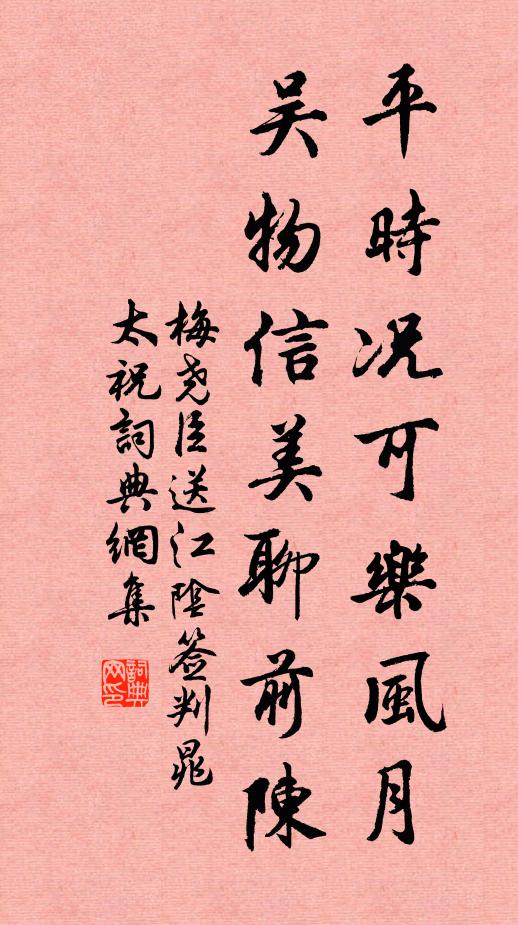 平時况可樂風月
吴物信美聊前陳
梅尧臣送江陰签判晁
太祝詞典網集
詞典
网印